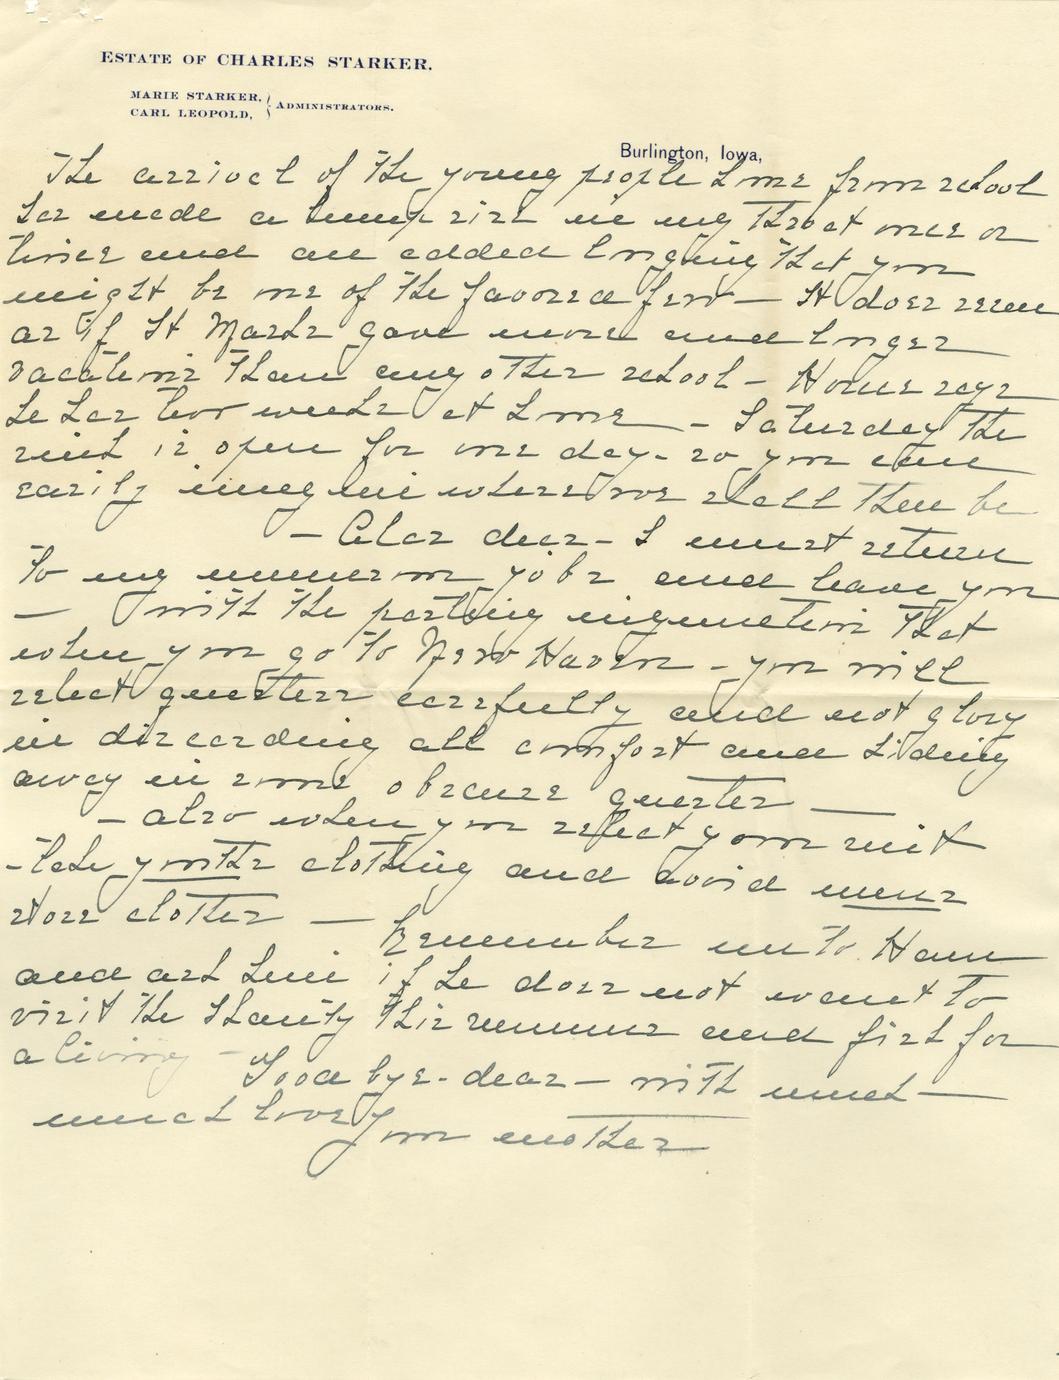 ESTATE OF CHARLES STARKER.
MARIE STARKER,
CARL LEOPOLD,
ADMINISTRATORS.
Burlington, Iowa,
The arrival of the young people home from school
has made a lump rise in my throat once or
twice and an added longing that you
might be one of the favored few — It does seem
as if St Marks gave more and longer
vacations than any other school – Howe says
he has two weeks at home – Saturday the
rink is open for one day – so you can
easily imagine where we shall then be
– Alas dear – I must return
to my numerous jobs and leave you
— with the parting injunction that
when you go to New Haven – you will
select quarters carefully and not glory
in discarding all comfort and hiding
away in some obscure quarter —
– also when you select your suit
– take youths clothing and avoid mens
store clothes — Remember me to Ham
and ask him if he does not want to
visit the Shanty this summer and fish for
a living – Good bye – dear – with much —
much love Your mother